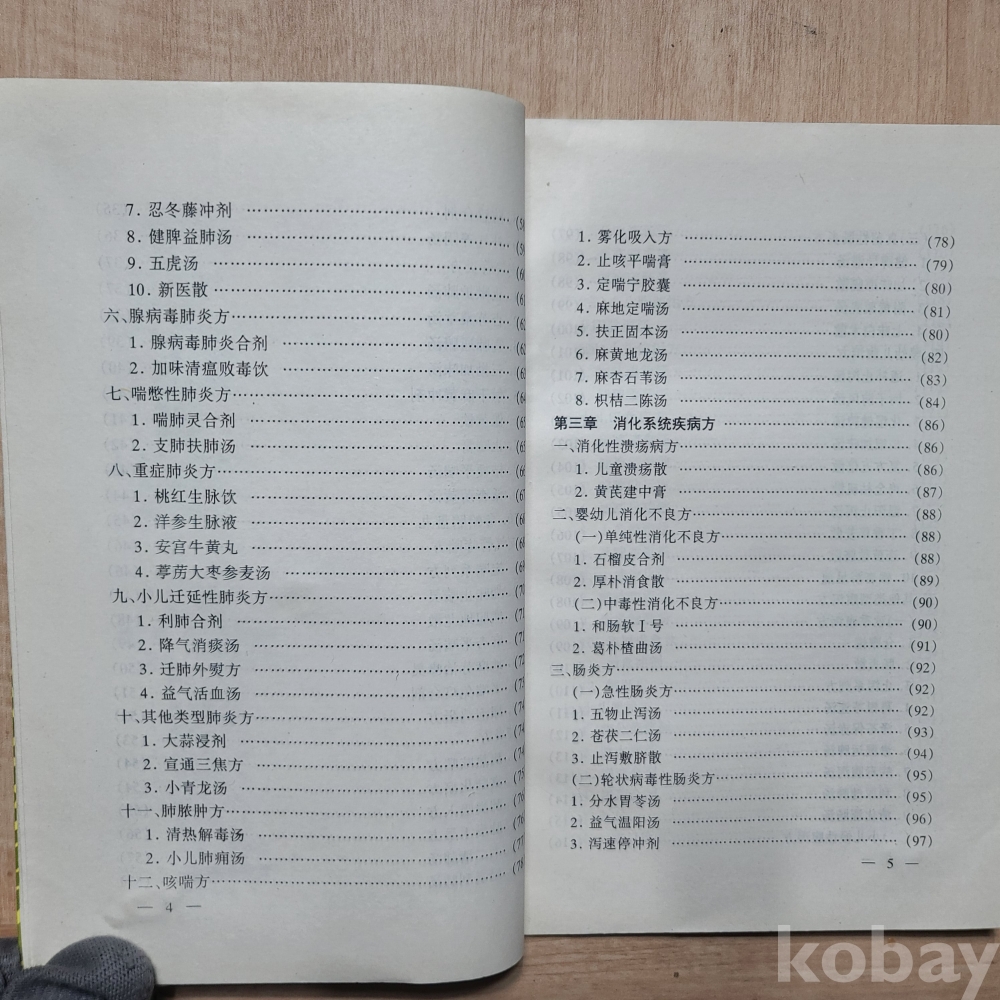 7. 忍冬藤冲剂 ……
8. 健脾益肺汤 ……
9. 五虎汤 ……
10. 新医散 ……
六、腺病毒肺炎方 ……
1. 腺病毒肺炎合剂 ……
2. 加味清瘟败毒饮 ……
七、喘憋性肺炎方 ……
1. 喘肺灵合剂 ……
2. 支肺扶肺汤 ……
八、重症肺炎方 ……
1. 桃红生脉饮 ……
2. 洋参生脉液 ……
3. 安宫牛黄丸 ……
4. 葶苈大枣参麦汤 ……
九、小儿迁延性肺炎方 ……
1. 利肺合剂 ……
2. 降气消痰汤 ……
3. 迁肺外熨方 ……
4. 益气活血汤 ……
十、其他类型肺炎方 ……
1. 大蒜浸剂 ……
2. 宣通三焦方 ……
3. 小青龙汤 ……
十一、肺脓肿方 ……
1. 清热解毒汤 ……
2. 小儿肺痈汤 ……
十二、咳喘方 ……
— 4 —
1. 雾化吸入方 …… (78)
2. 止咳平喘膏 …… (79)
3. 定喘宁胶囊 …… (80)
4. 麻地定喘汤 …… (81)
5. 扶正固本汤 …… (80)
6. 麻黄地龙汤 …… (82)
7. 麻杏石苇汤 …… (83)
8. 枳桔二陈汤 …… (84)
第三章 消化系统疾病方 …… (86)
一、消化性溃疡病方 …… (86)
1. 儿童溃疡散 …… (86)
2. 黄芪建中膏 …… (87)
二、婴幼儿消化不良方 …… (88)
(一)单纯性消化不良方 …… (88)
1. 石榴皮合剂 …… (88)
2. 厚朴消食散 …… (89)
(二)中毒性消化不良方 …… (90)
1. 和肠软Ⅰ号 …… (90)
2. 葛朴楂曲汤 …… (91)
三、肠炎方 …… (92)
(一)急性肠炎方 …… (92)
1. 五物止泻汤 …… (92)
2. 苍茯二仁汤 …… (93)
3. 止泻敷脐散 …… (94)
(二)轮状病毒性肠炎方 …… (95)
1. 分水胃苓汤 …… (95)
2. 益气温阳汤 …… (96)
3. 泻速停冲剂 …… (97)
— 5 —
kobay